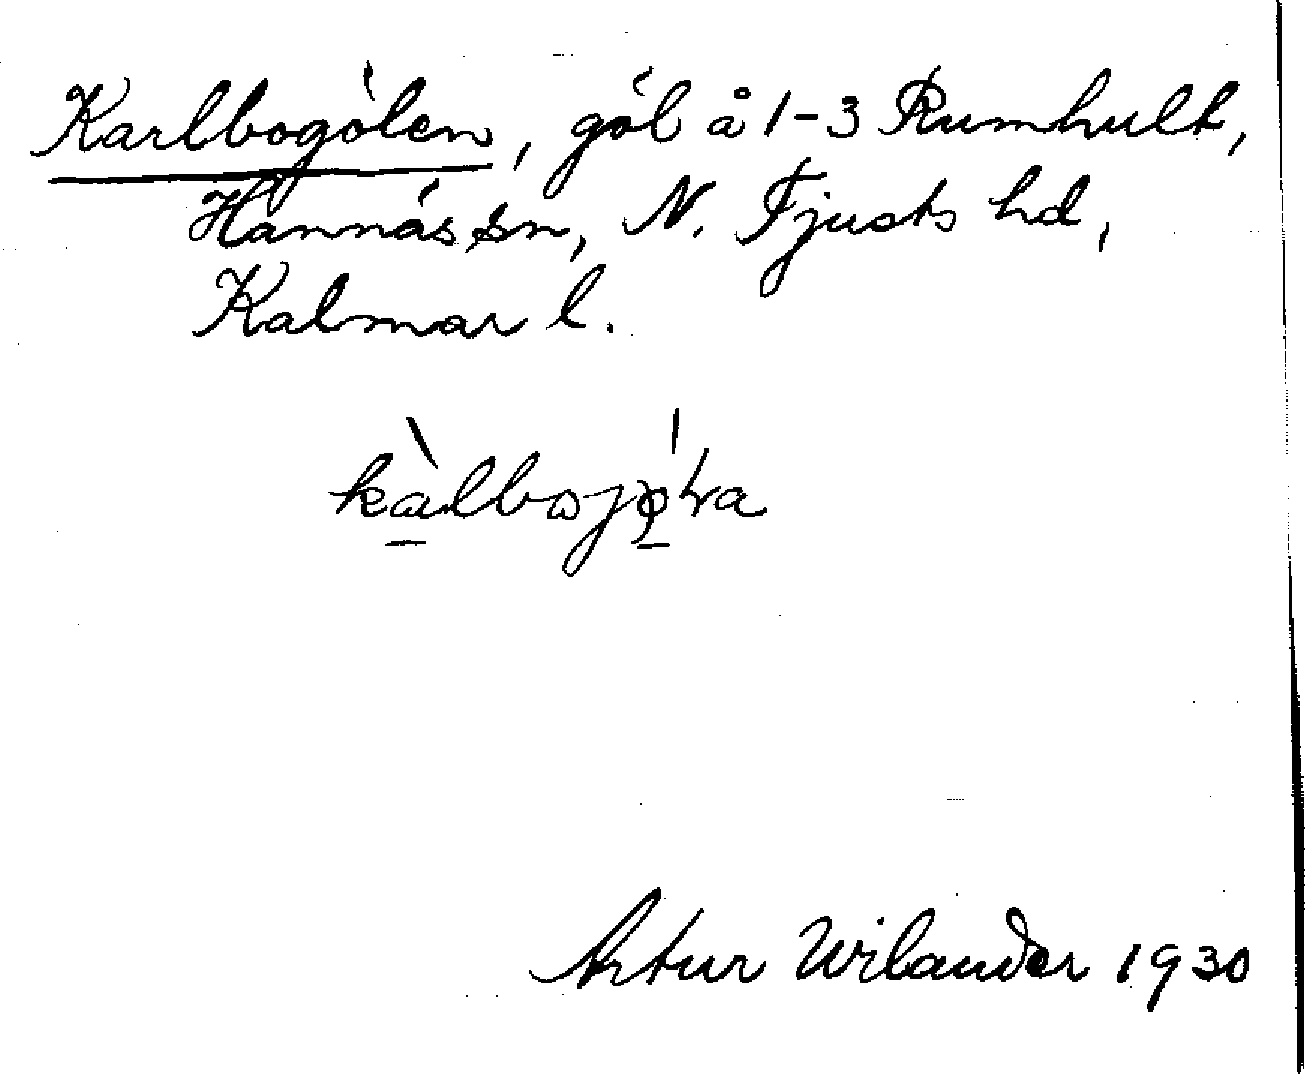 Karlbogólen, gól å 1-3 Rumhult,
Hannäs sn, N. Tjusts hd,
Kalmar l.
Artur Wilander 1930